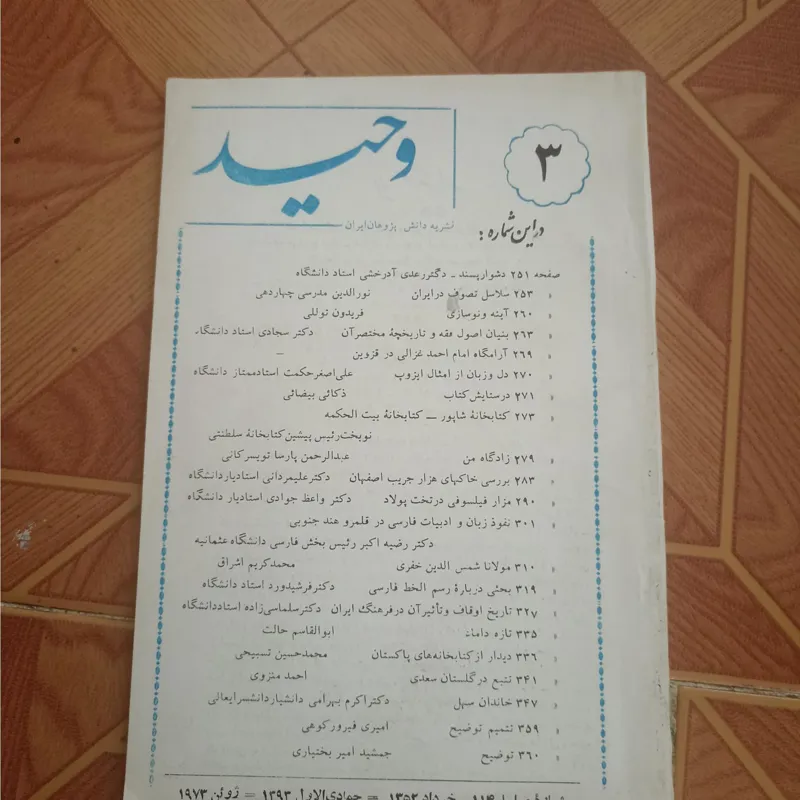 وحید
۳
نشریه دانش پژوهان ایران
در این شماره:
صفحه ۲۵۱ دشوارپسند ـ دکتر رعدی آدرخشی استاد دانشگاه
» ۲۵۳ سلاسل تصوف در ایران نورالدین مدرسی چهاردهی
» ۲۶۰ آینه ونوسازی فریدون توللی
» ۲۶۳ بنیان اصول فقه و تاریخچهٔ مختصر آن دکتر سجادی استاد دانشگاه
» ۲۶۹ آرامگاه امام احمد غزالی در قزوین –
» ۲۷۰ دل وزبان از امثال ایزوپ علی‌اصغر حکمت استاد ممتاز دانشگاه
» ۲۷۱ در ستایش کتاب ذکائی بیضائی
» ۲۷۳ کتابخانهٔ شاپور ــ کتابخانهٔ بیت الحکمه
نوبخت رئیس پیشین کتابخانهٔ سلطنتی
» ۲۷۹ زادگاه من عبدالرحمن پارسا تویسرکانی
» ۲۸۳ بررسی خاکهای هزار جریب اصفهان دکتر علیمردانی استادیار دانشگاه
» ۲۹۰ مزار فیلسوفی در تخت پولاد دکتر واعظ جوادی استادیار دانشگاه
» ۳۰۱ نفوذ زبان و ادبیات فارسی در قلمرو هند جنوبی
دکتر رضیه اکبر رئیس بخش فارسی دانشگاه عثمانیه
» ۳۱۰ مولانا شمس الدین خفری محمد کریم اشراق
» ۳۱۹ بحثی دربارهٔ رسم الخط فارسی دکتر فرشیدورد استاد دانشگاه
» ۳۲۷ تاریخ اوقاف وتأثیر آن در فرهنگ ایران دکتر سلماسی‌زاده استاد دانشگاه
» ۳۳۵ تازه داماد ابوالقاسم حالت
» ۳۳۶ دیدار از کتابخانه‌های پاکستان محمدحسین تسبیحی
» ۳۴۱ تتبع در گلستان سعدی احمد منزوی
» ۳۴۷ خاندان سهل دکتر اکرم بهرامی دانشیار دانشسرایعالی
» ۳۵۹ تتمیم توضیح امیری فیروزکوهی
» ۳۶۰ توضیح جمشید امیر بختیاری
۱۱۴ ـ خرداد ۱۳۵۲ = جمادی‌الاول ۱۳۹۳ = ژوئن ۱۹۷۳